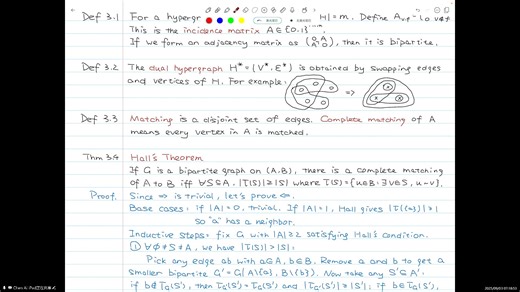 Def 3.1 For a hypergr |H|=m. Define
This is the incidence matrix A∈{0,1}
If we form an adjacency matrix as (0 A; Aᵀ 0), then it is bipartite.
Def 3.2 The dual hypergraph H* = (V*, E*) is obtained by swapping edges
and vertices of H. For example: ⇒
Def 3.3 Matching is a disjoint set of edges. Complete matching of A
means every vertex in A is matched.
Thm 3.4 Hall's Theorem
If G is a bipartite graph on (A,B), there is a complete matching
of A to B iff ∀S⊆A, |Γ(S)|≥|S| where Γ(S)={u∈B: ∃v∈S, u~v}.
Proof. Since ⇒ is trivial, let's prove ⇐.
Base cases: if |A|=0, trivial. If |A|=1, Hall gives |Γ({a})|≥1
so "a" has a neighbor.
Inductive steps: fix G with |A|≥2 satisfying Hall's condition.
① ∀∅≠S≠A, we have |Γ(S)|>|S|:
Pick any edge ab with a∈A, b∈B. Remove a and b to get a
smaller bipartite G'=G[A\{a}, B\{b}]. Now take any S'⊆A'.
if b∉Γ_G(S'), then Γ_G'(S')=Γ_G(S') and |Γ_G'(S')|≥|S'|; if b∈Γ_G(S'),